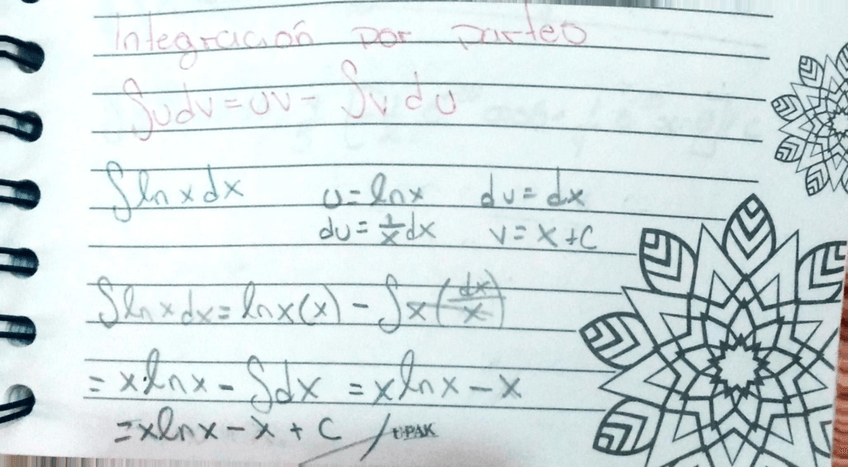 Integración por partes
∫udv=uv-∫vdu
∫lnxdx u=lnx dv=dx
du=1/x dx v=x+c
∫lnxdx=lnx(x)-∫x(dx/x)
=x·lnx-∫dx =xlnx-x
=xlnx-x+c UPAK